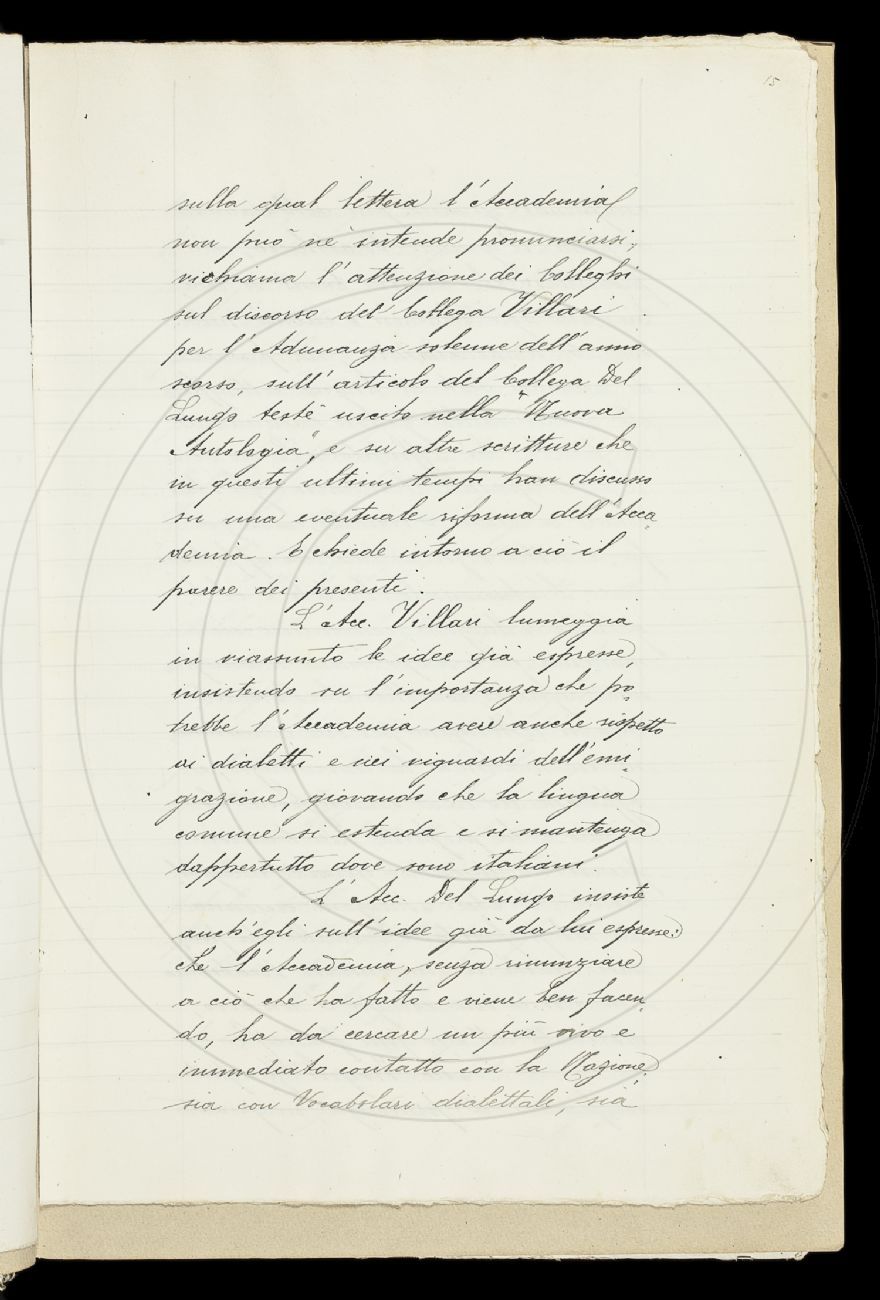 15
sulla qual lettera l'Accademia
non può nè intende pronunciarsi,
richiama l'attenzione dei Colleghi
sul discorso del Collega Villari
per l'Adunanza solenne dell'anno
scorso, sull'articolo del Collega Del
Lungo testè uscito nella "Nuova
Antologia", e su altre scritture che
in questi ultimi tempi han discusso
su una eventuale riforma dell'Acca=
demia. E chiede intorno a ciò il
parere dei presenti.
L'Acc. Villari lumeggia
in riassunto le idee già espresse,
insistendo su l'importanza che po=
trebbe l'Accademia avere anche rispetto
ai dialetti e nei riguardi dell'emi=
grazione, giovando che la lingua
comune si estenda e si mantenga
dappertutto dove sono italiani.
L'Acc. Del Lungo insiste
anch'egli sull'idee già da lui espresse:
che l'Accademia, senza rinunziare
a ciò che ha fatto e viene ben facen=
do, ha da cercare un più vivo e
immediato contatto con la Nazione,
sia con Vocabolari dialettali, sia